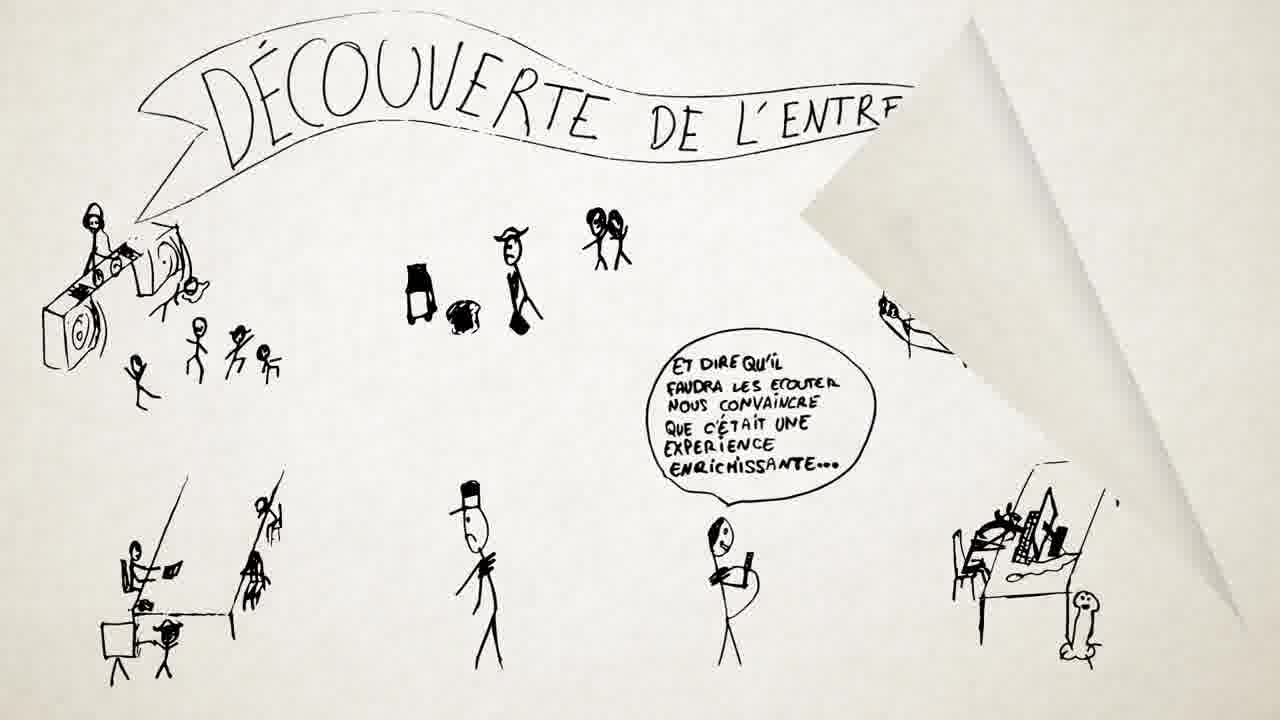 DÉCOUVERTE DE L'ENTRE
ET DIRE QU'IL
FAUDRA LES ECOUTER
NOUS CONVAINCRE
QUE C'ÉTAIT UNE
EXPERIENCE
ENRICHISSANTE...